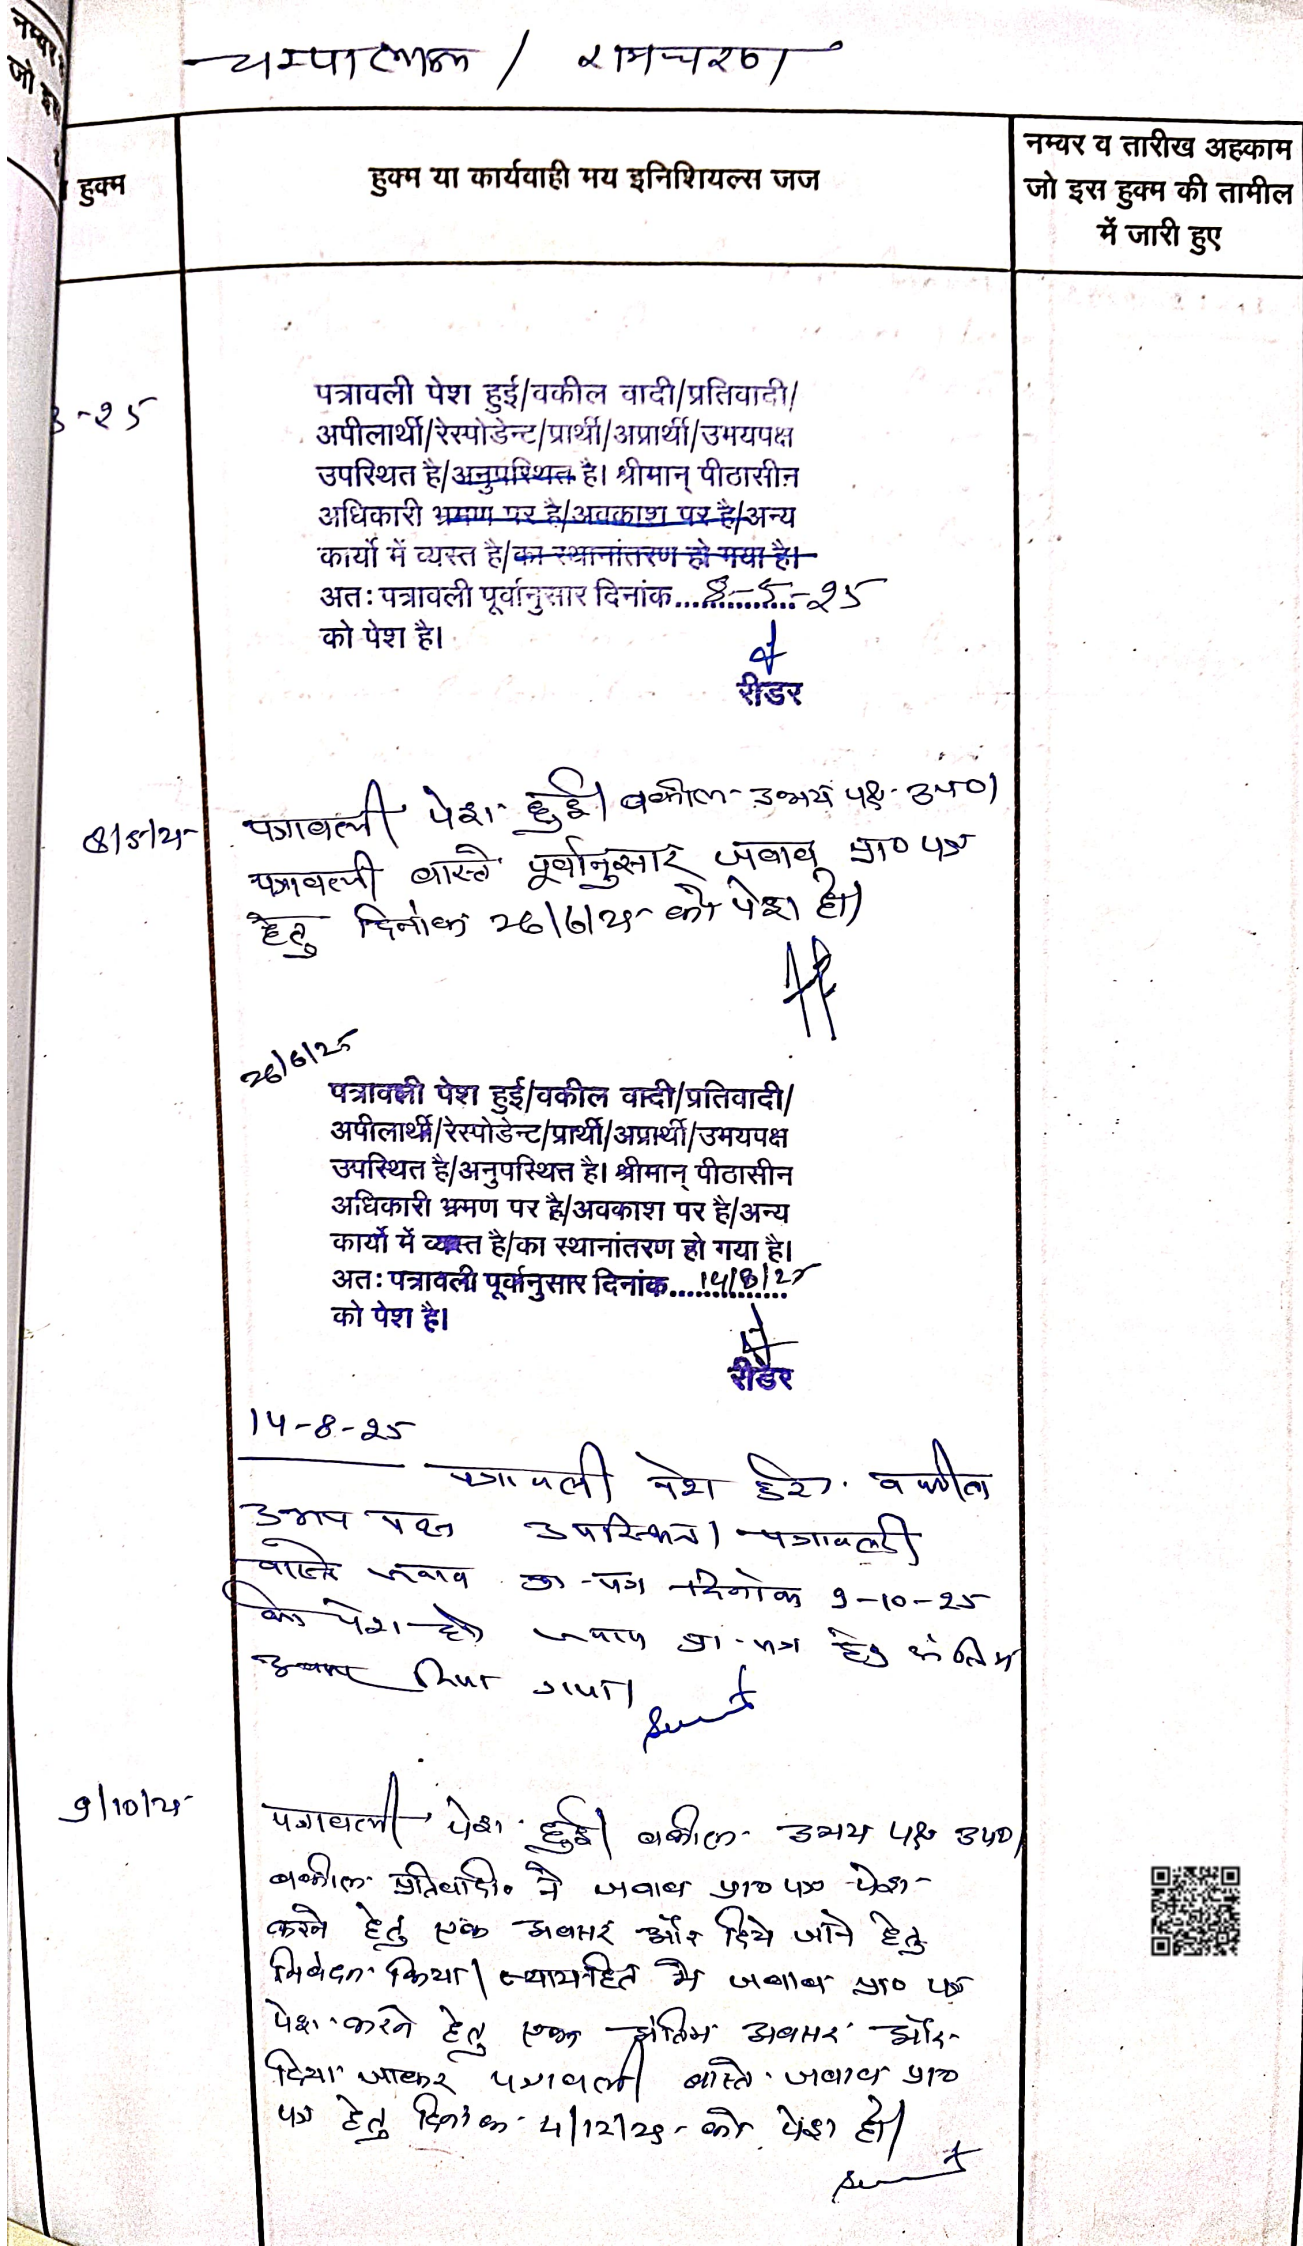 नम्बर
जो इस
चम्पालाल / रामचरण
हुक्म
हुक्म या कार्यवाही मय इनिशियल्स जज
नम्बर व तारीख अहकाम
जो इस हुक्म की तामील
में जारी हुए
3-25
पत्रावली पेश हुई/वकील वादी/प्रतिवादी/
अपीलार्थी/रेस्पोडेन्ट/प्रार्थी/अप्रार्थी/उभयपक्ष
उपस्थित है/अनुपस्थित है। श्रीमान् पीठासीन
अधिकारी भ्रमण पर है/अवकाश पर है/अन्य
कार्यो में व्यस्त है/का स्थानांतरण हो गया है।
अतः पत्रावली पूर्वानुसार दिनांक....8-5-25
को पेश है।
रीडर
8/5/25
पत्रावली पेश हुई। वकील उभय पक्ष उप०।
पत्रावली वास्ते पूर्वानुसार जवाब प्रा० पत्र
हेतु दिनांक 26/6/25 को पेश हो।
26/6/25
पत्रावली पेश हुई/वकील वादी/प्रतिवादी/
अपीलार्थी/रेस्पोडेन्ट/प्रार्थी/अप्रार्थी/उभयपक्ष
उपस्थित है/अनुपस्थित है। श्रीमान् पीठासीन
अधिकारी भ्रमण पर है/अवकाश पर है/अन्य
कार्यो में व्यस्त है/का स्थानांतरण हो गया है।
अतः पत्रावली पूर्वानुसार दिनांक....14/8/25
को पेश है।
रीडर
14-8-25
पत्रावली पेश हुई। वकील
उभय पक्ष उपस्थित। पत्रावली
वास्ते जवाब प्रा-पत्र दिनांक 9-10-25
को पेश हो जवाब प्रा-पत्र हेतु अंतिम
अवसर दिया गया।
9/10/25
पत्रावली पेश हुई। वकील उभय पक्ष उप०।
वकील प्रतिवादी० ने जवाब प्रा० पत्र पेश
करने हेतु एक अवसर और दिये जाने हेतु
निवेदन किया। न्यायहित में जवाब प्रा० पत्र
पेश करने हेतु एक अंतिम अवसर और
दिया जाकर पत्रावली वास्ते जवाब प्रा०
पत्र हेतु दिनांक 4/12/25 को पेश हो।